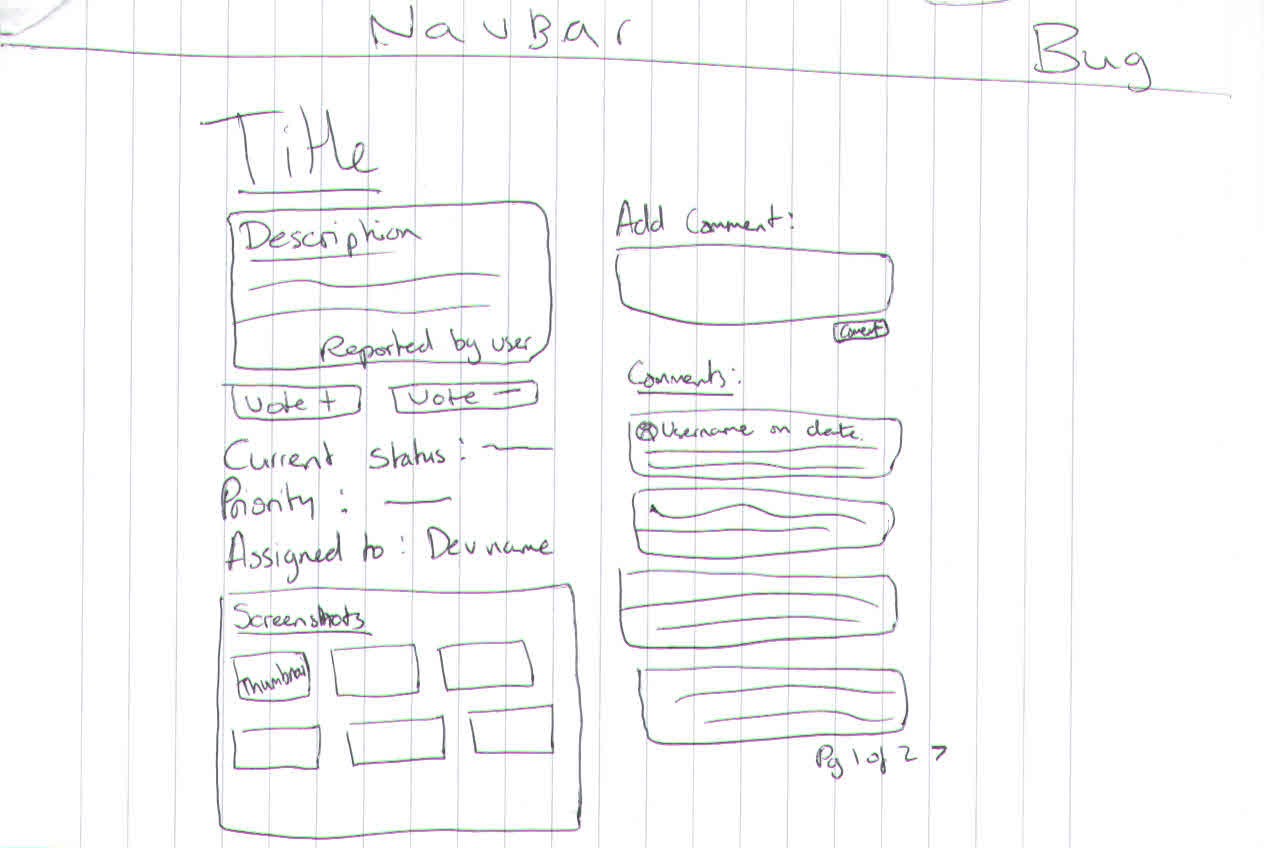 NavBar
Bug
Title
Description
Reported by user
Vote +
Vote -
Current status:
Priority:
Assigned to: Dev name
Screenshots
Thumbnail
Add Comment:
Comment
Comments:
Username on date.
Pg 1 of 2 >